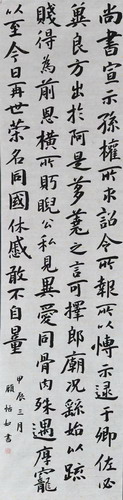 尚書宣示孫權所求詔令所報所以博示逮于卿佐必
冀良方出於阿是芻蕘之言可擇郎廟況繇始以疏
賤得為前恩橫所盱睨公私見異愛同骨肉殊遇厚寵
以至今日再世榮名同國休戚敢不自量
甲辰三月
書